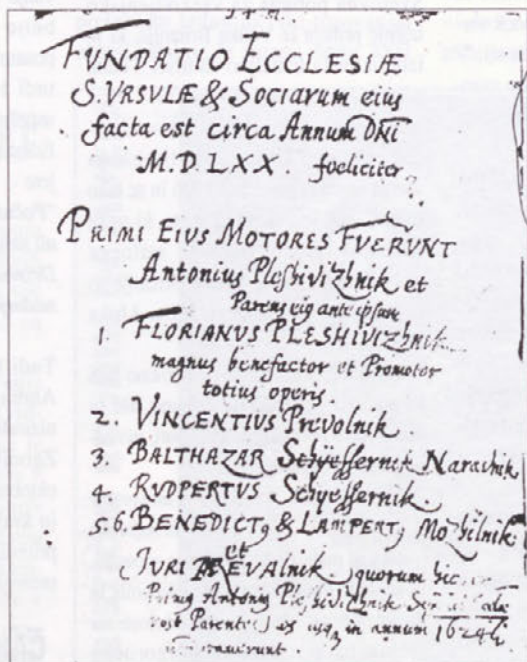 FUNDATIO ECCLESIÆ
S. VRSVLÆ & Sociarum eius
facta est circa Annum DNI
M.D.LXX. foeliciter.
PRIMI EIUS MOTORES FVERVNT
Antonius Pleshivizhnik et
Parens eiq ante ipsum
1. FLORIANVS PLESHIVIZhnik
magnus benefactor et Promoter
totius operis.
2. VINCENTIVS Prevolnik
3. BALTHAZAR Schyeffernik Narachik
4. RVDPERTVS Schyeffernik
5. 6. BENEDICT9 & LAMPERT9 Mozilnik
et
IURI Evalnik quorum hic
Primus Antoni9 Pleshivizhnik
post Parentes in annum 1624